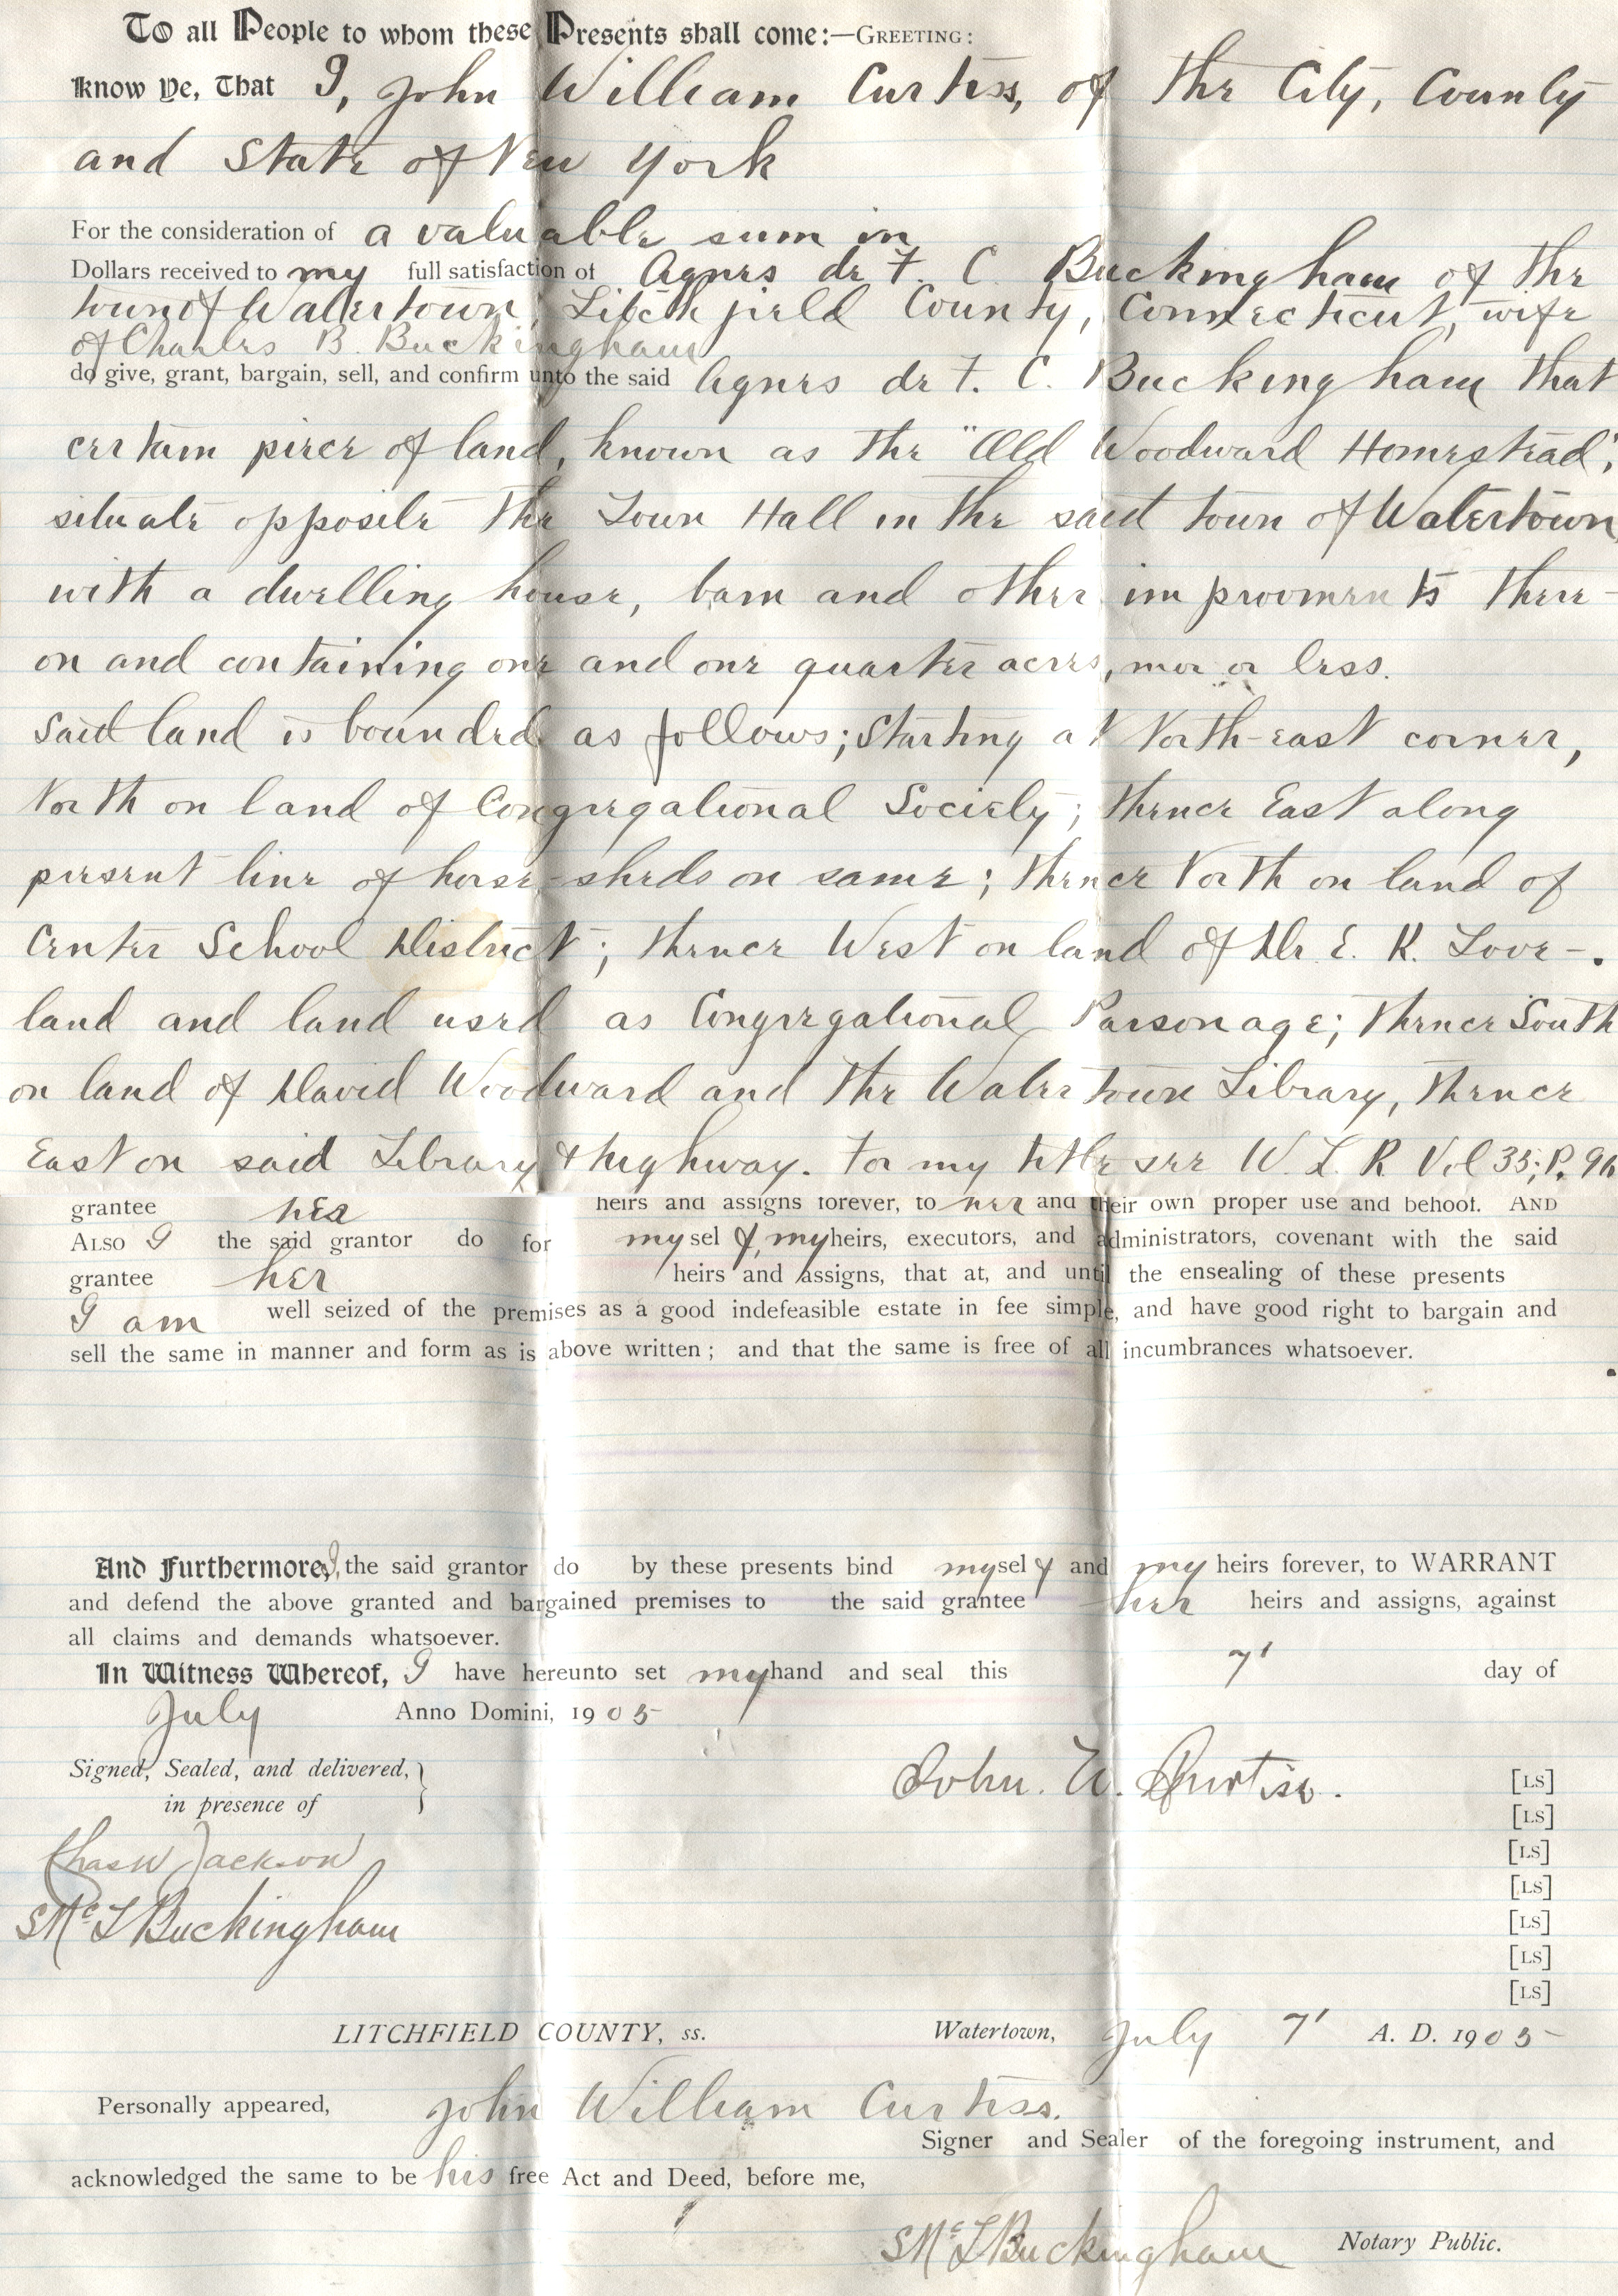 To all People to whom these Presents shall come:—GREETING:
Know Ye, That I, John William Curtiss, of the City, County
and State of New York
For the consideration of a valuable sum in
Dollars received to my full satisfaction of Agnes de F. C. Buckingham of the
town of Watertown, Litchfield County, Connecticut, wife
of Charles B. Buckingham
do give, grant, bargain, sell, and confirm unto the said Agnes de F. C. Buckingham that
certain piece of land, known as the "Old Woodward Homestead",
situate opposite the Town Hall in the said town of Watertown,
with a dwelling house, barn and other improvments there-
on and containing one and one quarter acres, mor or less.
Said land is bounded as follows; Starting at North-east corner,
North on land of Congregational Society; thence East along
present line of horse-sheds on same; thence North on land of
Center School District; thence West on land of Dr. E. K. Love-
land and land used as Congregational Parsonage; thence South
on land of David Woodward and the Watertown Library, thence
East on said Library & highway. For my title see W. L. R. Vol 35; P. 96
grantee her heirs and assigns forever, to her and their own proper use and behoof. AND
ALSO I the said grantor do for mysel f, my heirs, executors, and administrators, covenant with the said
grantee her heirs and assigns, that at, and until the ensealing of these presents
I am well seized of the premises as a good indefeasible estate in fee simple, and have good right to bargain and
sell the same in manner and form as is above written; and that the same is free of all incumbrances whatsoever.
And Furthermore, I, the said grantor do by these presents bind mysel f and my heirs forever, to WARRANT
and defend the above granted and bargained premises to the said grantee her heirs and assigns, against
all claims and demands whatsoever.
In Witness Whereof, I have hereunto set my hand and seal this 7' day of
July Anno Domini, 1905
Signed, Sealed, and delivered, }
in presence of
John. W. Curtiss. [LS]
[LS]
Chas W Jackson [LS]
[LS]
S McL Buckingham [LS]
[LS]
[LS]
LITCHFIELD COUNTY, ss. Watertown, July 7' A. D. 1905
Personally appeared, John William Curtiss.
Signer and Sealer of the foregoing instrument, and
acknowledged the same to be his free Act and Deed, before me,
S McL Buckingham Notary Public.